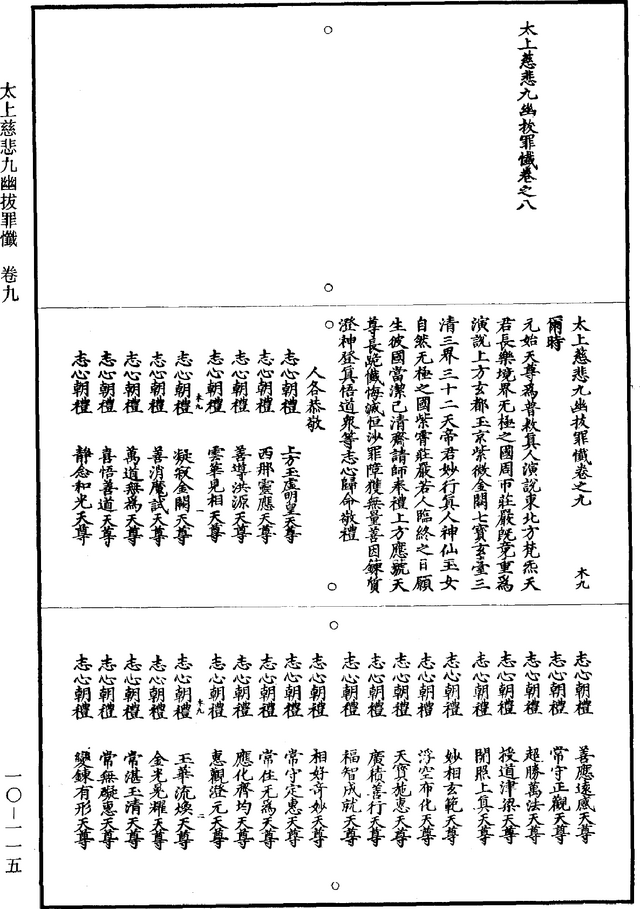 太上慈悲九幽拔罪懺　卷九
一〇—一一五
太上慈悲九幽拔罪懺卷之八
太上慈悲九幽拔罪懺卷之九　木九
爾時
元始天尊為普救真人演說東北方梵炁天
君長樂境界无極之國周帀莊嚴旣竟重為
演說上方玄都玉京紫微金闕七寶玄臺三
清三界三十二天帝君妙行真人神仙玉女
自然无極之國紫雲莊嚴若人臨終之日願
生彼國當潔己清齋請師奉禮上方應號天
尊長跪懺悔滅恒沙罪障獲無量善因鍊質
澄神登真悟道衆等志心歸命敬禮
人各恭敬
志心朝禮　上方玉虛明皇天尊
志心朝禮　西那靈應天尊
志心朝禮　善導洪源天尊
志心朝禮　雲華見相天尊
木九　一
志心朝禮　凝寂金闕天尊
志心朝禮　善消魔試天尊
志心朝禮　萬道無為天尊
志心朝禮　喜悟善道天尊
志心朝禮　靜念和光天尊
志心朝禮　善應遠感天尊
志心朝禮　常守正觀天尊
志心朝禮　超勝萬法天尊
志心朝禮　投道津梁天尊
志心朝禮　開照上真天尊
志心朝禮　妙相玄範天尊
志心朝禮　浮空布化天尊
志心朝禮　天寶施惠天尊
志心朝禮　廣積善行天尊
志心朝禮　福智成就天尊
志心朝禮　相好奇妙天尊
志心朝禮　常守定惠天尊
志心朝禮　常住无為天尊
志心朝禮　應化齊均天尊
志心朝禮　惠觀澄元天尊
木九　二
志心朝禮　玉華流煥天尊
志心朝禮　金光晃耀天尊
志心朝禮　常湛玉清天尊
志心朝禮　常無礙惠天尊
志心朝禮　變鍊有形天尊